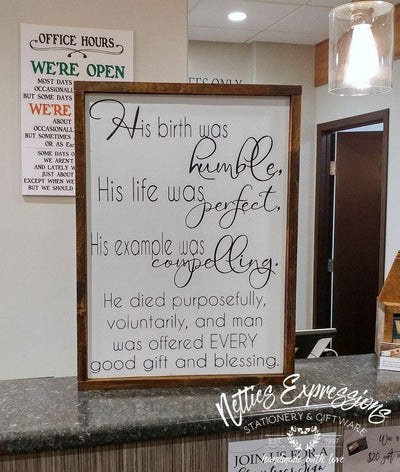 OFFICE HOURS
WE'RE OPEN
MOST DAYS
OCCASIONALL
BUT SOME DAYS
WE'RE
ABOUT
OCCASIONALL
BUT SOMETIMES
OR AS Ear
SOME DAYS O
WE AREN'T
AND LATELY W
JUST ABOUT
EXCEPT WHEN WE
BUT WE SHOULD
FES ONLY
His birth was
humble,
His life was
perfect,
His example was
compelling.
He died purposefully,
voluntarily, and man
was offered EVERY
good gift and blessing.
Netties Expressions
STATIONERY & GIFTWARE
EST. 1997
Handmade with love
JOIN US FOR A
$20 gift